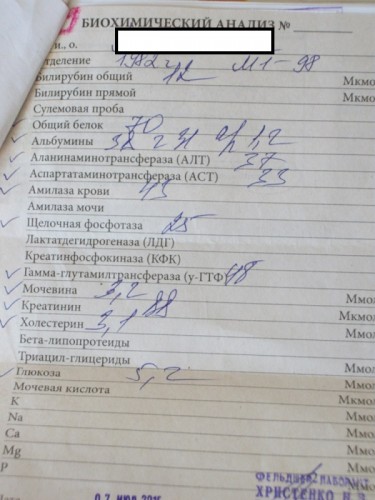 БИОХИМИЧЕСКИЙ АНАЛИЗ №
и., о.
тделение 1982 М1-98
Билирубин общий 12 Мкмо
Билирубин прямой Мкмол
Сулемовая проба
Общий белок 70
Альбумины 38 г 31 1,2
Аланинаминотрансфераза (АЛТ) 37
Аспартатаминотрансфераза (АСТ) 33
Амилаза крови 43
Амилаза мочи
Щелочная фосфотаза 25
Лактатдегидрогеназа (ЛДГ)
Креатинфосфокиназа (КФК)
Гамма-глутамилтрансфераза (у-ГТФ) 48
Мочевина 3,2 Ммол
Креатинин 88 Мкмол
Холестерин 3,1 Ммол
Бета-липопротеиды
Триацил-глицериды Ммол
Глюкоза 5,2 Ммол
Мочевая кислота Ммол
K Мкмол
Na Ммол
Ca Ммол
Mg Ммол
P Ммол
ФЕЛЬДШЕР ЛАБОРАНТ
ХРИСТЕНКО В.В